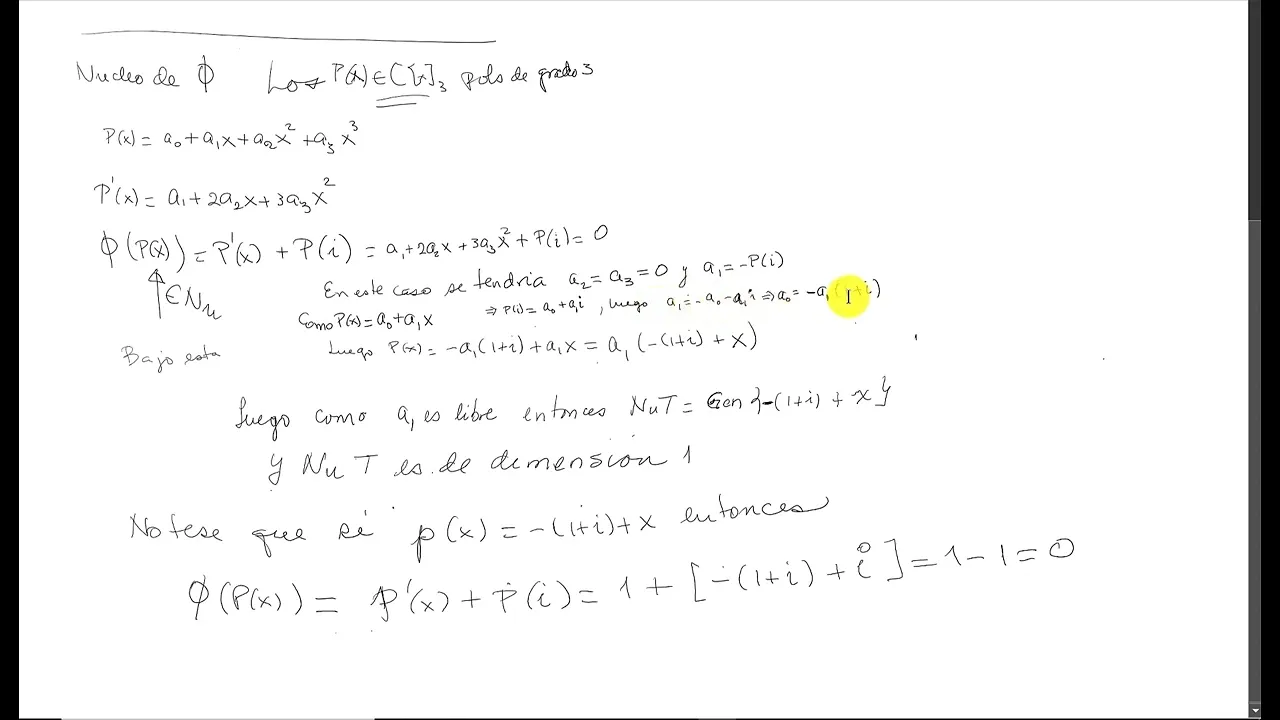 Nucleo de ϕ Los P(x) ∈ C[x]₃ polo de grado 3
P(x) = a₀ + a₁x + a₂x² + a₃x³
P'(x) = a₁ + 2a₂x + 3a₃x²
ϕ(P(x)) = P'(x) + P(i) = a₁ + 2a₂x + 3a₃x² + P(i) = 0
↑ ∈ Nu
En este caso se tendria a₂ = a₃ = 0 y a₁ = -P(i)
Como P(x) = a₀ + a₁x ⇒ P(i) = a₀ + a₁i, luego a₁ = -a₀ - a₁i ⇒ a₀ = -a₁(1+i)
Bajo esta
Luego P(x) = -a₁(1+i) + a₁x = a₁(-(1+i) + x)
Luego como a₁ es libre entonces NuT = Gen{-(1+i) + x}
y Nu T es de dimension 1
Notese que si p(x) = -(1+i) + x entonces
ϕ(P(x)) = p'(x) + P(i) = 1 + [-(1+i) + i] = 1 - 1 = 0